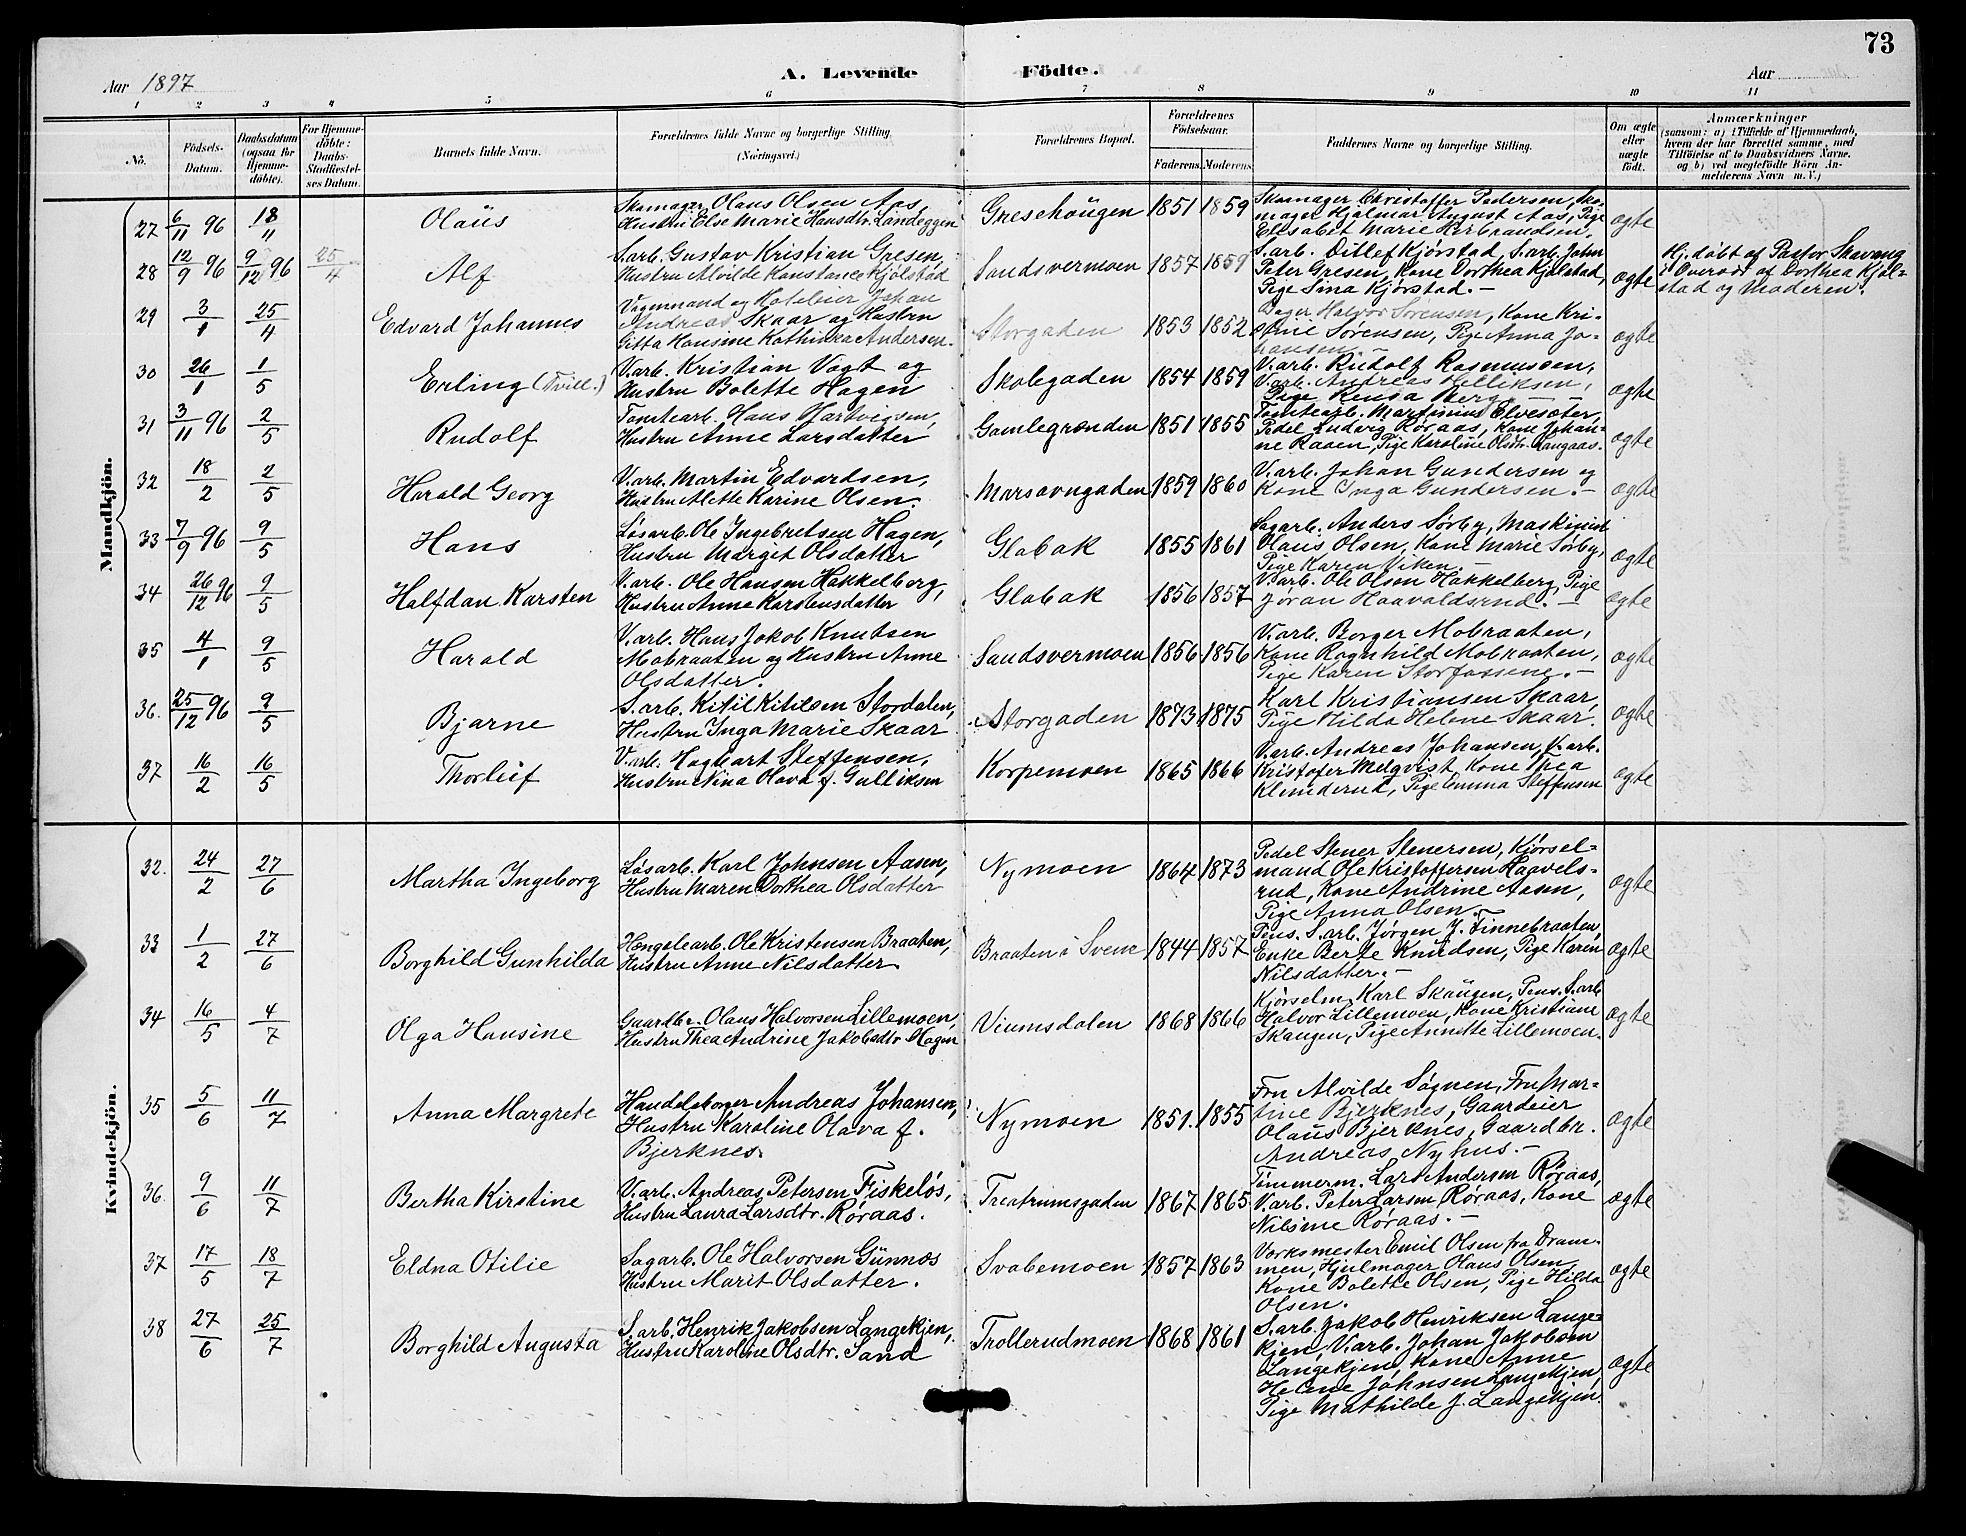 73
Aar 1897 A. Levende Födte. Aar
1 2 3 4 5 6 7 8 9 10 11
No. Födsels-Datum. Daabsdatum (ogsaa for Hjemmedöbte). For Hjemmedöbte: Daabs-Stadfæstelses Datum. Barnets fulde Navn. Forældrenes fulde Navne og borgerlige Stilling. (Næringsvei.) Forældrenes Bopæl. Forældrenes Födselsaar. Faderens. Moderens. Faddernes Navne og borgerlige Stilling. Om ægte eller uægte födt. Anmærkninger (saasom: a) i Tilfælde af Hjemmedaab, hvem der har forrettet samme, med Tilföielse af to Daabsvidners Navne, og b) ved uægtefödte Börn Anmelderens Navn m. V.)
Mandkjön.
27 6/11 96 18/11 Olaüs
Skomager Olaus Olsen Aas,
Hustru Else Marie Hansdtr. Landeggen
Gresehöugen 1851 1859
Skomager Christoffer Pedersen, Sko-
mager Hjalmar August Aas, Pige
Elisabet Marie Herbrandsen.
ægte
28 12/9 96 9/12 96 25/4 Alf
S.arb. Gustav Kristian Gresen,
Hustru Alvilde Konstance Kjölstad
Sandsvermoen 1857 1859
S.arb. Ditlef Kjörstad, S.arb. John
Peter Gresen, Kone Dorthea Kjølstad,
Pige Sina Kjørstad.-
ægte
Hj.døbt af Pastor Skavang
i Overvær af Dorthea Kjöl-
stad og Moderen.
29 3/1 25/4 Edvard Johannes
Vognmand og Hoteleier Johan
Andreas Skaar og Hustru
Gitta Hansine Kathinka Andersen.
Storgaden 1853 1852
Bager Halvor Sørensen, Kone Kri-
stine Sørensen, Pige Anna Jo-
hansen.
ægte
30 26/1 1/5 Erling (Tvill.)
V.arb. Kristian Vogt og
Hustru Bolette Hagen
Skolegaden 1854 1859
V.arb. Rudolf Rasmussen,
V.arb. Andreas Helliksen,
Pige Berg. -
ægte
31 3/11 96 2/5 Rudolf
Tomtearb. Hans Hartvigsen,
Hustru Anne Larsdatter
Gamlegrænden 1851 1855
Tomtearb. Martinius Elvesæter,
Pedel Ludvig Røraas, Kone Johan-
ne Raaen, Pige Karoline Olsdtr. Langaas.
ægte
32 18/2 2/5 Harald Georg
V.arb. Martin Edvardsen,
Hustru Alette Karine Olsen.
Marsovngaden 1859 1860
V.arb. Johan Gundersen og
Kone Inga Gundersen.-
ægte
33 7/9 96 9/5 Hans
Løsarb. Ole Ingebretsen Hagen,
Hustru Margit Olsdatter
Glabak 1855 1861
Sagarb. Anders Sørby, Maskinist
Olaus Olsen, Kone Marie Sørby,
Pige Karen Viken. -
ægte
34 26/12 96 9/5 Halfdan Karsten
V.arb. Ole Hansen Hakkelberg,
Hustru Anne Karstensdatter
Glabak 1856 1857
V.arb. Ole Olsen Hakkelberg, Pige
Jøran Haavaldsrud. -
ægte
35 4/1 9/5 Harald
V.arb. Hans Jakob Knutsen
Mobraaten og Hustru Anne
Olsdatter.
Sandsvermoen 1856 1856
V.arb. Borger Mobraaten,
Kone Ragnhild Mobraaten,
Pige Karen Storfossene. -
ægte
36. 25/12 96 9/5 Bjarne
S.arb. Kitil Kitilsen Stordalen,
Hustru Inga Marie Skaar
Storgaden 1873 1875
Karl Kristiansen Skaar,
Pige Hilda Helene Skaar.
ægte
37 16/2 16/5 Thorleif
V.arb. Hagbart Steffensen,
Hustru Nina Olava f. Gulliksen
Korpemoen 1865 1866
V.arb. Andreas Johansen, V.arb.
Kristofer Melqvist, Kone Thea
Klunderud, Pige Emma Steffensen
ægte
Kvindekjön.
32. 24/2 27/6 Martha Ingeborg
Løsarb. Karl Johnsen Aasen,
Hustru Maren Dorthea Olsdatter
Nymoen 1864 1873
Pedel Stener Stenersen, Kjørsel-
mand Ole Kristoffersen Haavels-
rud, Kone Andrine Aasen,
Pige Anna Olsen.
ægte
33 1/2 27/6 Borghild Gunhilda
Hengslearb. Ole Kristensen Braaten,
Hustru Anne Nilsdatter
Braaten i Svene 1844 1857
Pens. S.arb. Jørgen J. Finnebraaten,
Enke Berte Knudsen, Pige Karen
Nilsdatter.-
ægte
34 16/5 4/7 Olga Hansine
Gaardbr. Olaus Halvorsen Lillemoen,
Hustru Thea Andrine Jakobsdtr. Hagen
Viumsdalen 1868 1866
Kjørselm. Karl Skaugen, Pens. S.arb.
Halvor Lillemoen, Kone Kristiane
Skaugen, Pige Annette Lillemoen.
ægte
35 5/6 11/7 Anna Margrete
Handelsborger Andreas Johansen,
Hustru Karoline Olava f.
Bjerknes.
Nymoen 1851. 1855
Fru Alvilde Søgnen, Fru Mar-
tine Bjerknes, Gaardeier
Olaüs Bjerknes, Gaardbr.
Andreas Nyhus. -
ægte
36. 9/6 11/7 Bertha Kirstine
V.arb. Andreas Petersen Fiskeløs,
Hustru Laura Larsdtr. Røraas.
Treatrumsgaden 1867 1865
Tømmerm. Lars Andersen Røraas,
V.arb. Peter Larsen Røraas, Kone
Nilsine Røraas. -
ægte
37 17/5 18/7 Eldna Otilie
Sagarb. Ole Halvorsen Günnæs
Hustru Marit Olsdatter.
Svabemoen 1857 1863
Værksmester Emil Olsen fra Dram-
men, Hjulmager Olaus Olsen,
Kone Bolette Olsen, Pige Hilda
Olsen.
ægte
38 27/6 25/7 Borghild Augusta
S.arb. Henrik Jakobsen Langekjen,
Hustru Karoline Olsdtr. Sand
Trollerudmoen 1868 1861
S.arb. Jakob Henriksen Lange-
kjen, V.arb. Johan Jakobsen
Langekjen, Kone Anne
Helene Johnsen Langekjen,
Pige Mathilde J. Langekjen.
ægte